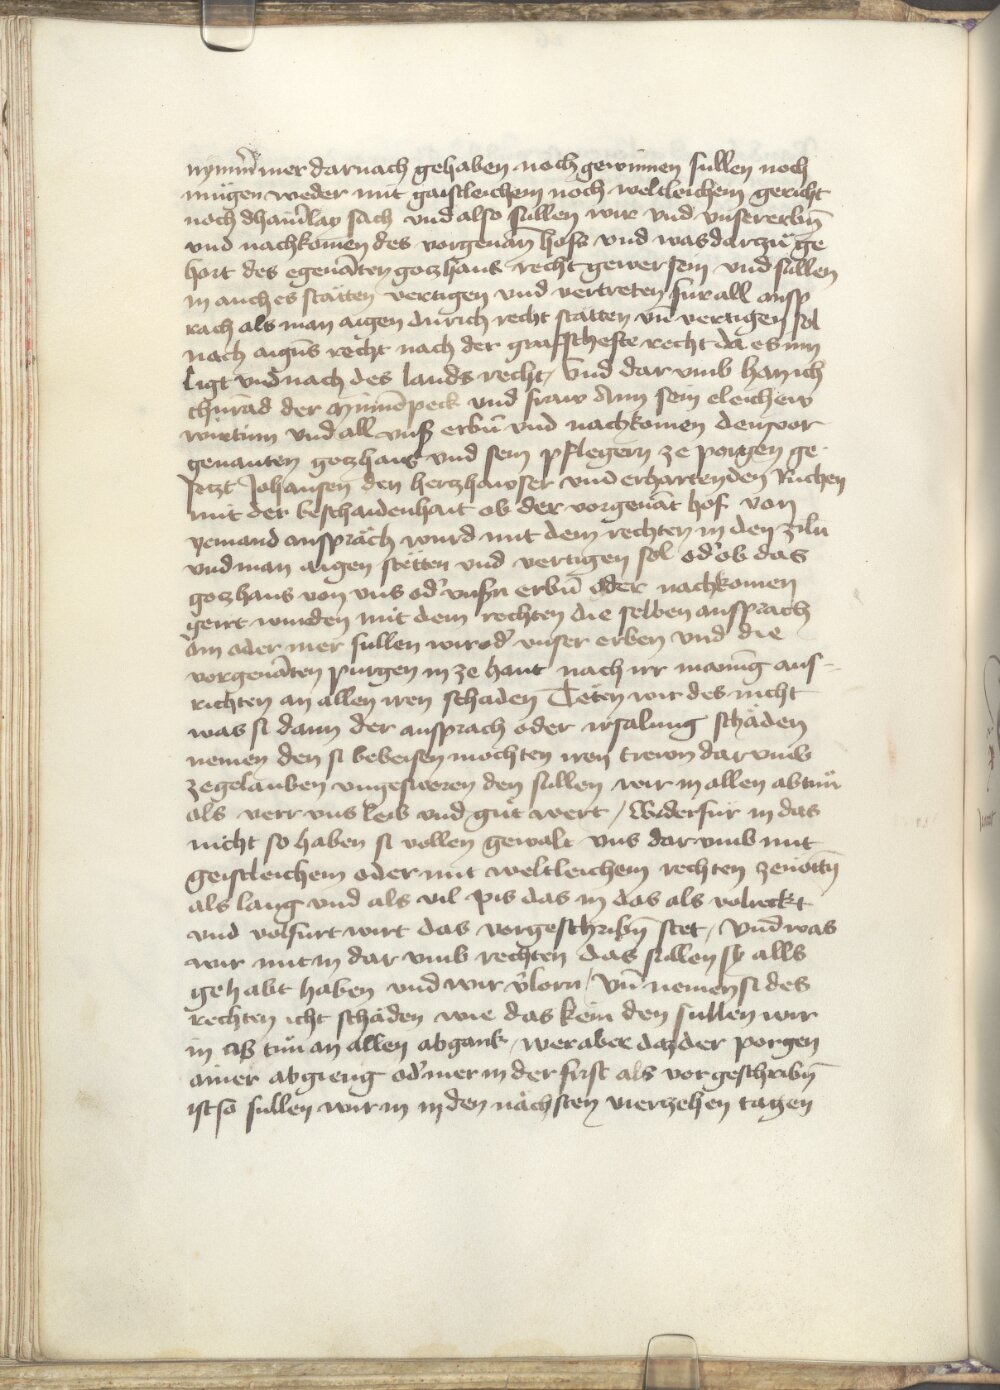 nymm̃mer darnach gehaben noch gewinnen sullen noch
mügen weder mit gaistleichem noch weltleichem gericht
noch dhainˀlay sach vnd also sullen wir vnd vnser erbñ
vnd nachkomen des vorgenañ hofs vnd was darzů ge
hort des egenãten gotzhaus recht gewer sein vnd sullen
in auch es stätten vertigen vnd vertreten fur all ansp
rach als man aigen durich recht stätten vñ vertigen sol
nach aigñs recht nach der grafscheffte recht da es inn
ligt vnd nach des lands recht / Vnd dar vmb han ich
chũrad der peck vnd fraw Ann sein eleichew
wirtinn vnd all vnsˀ erbñ vnd nachkomen dem vor
genanten gotzhaus vnd sein pflegern ze porgen ge
setzt Johansen den hertzhawser vnd erharten den Ruchen
mit der beschaidenhait ob der vorgenãt hof von
yemand anspräch wurd mit dem rechten in den ziln
vnd man aigen stëtten vnd vertigen sol odˀ ob das
gotzhaus von vns odˀ vnsˀn erbñ oder nachkomen
geirt wurden mit dem rechten die selben ansprach
äin oder mer sullen wir odˀ vnser erben vnd die
vorgenãten purgen in ze hant nach irr manũg aus-
richten an allen iren schaden Tëten wir des nicht
was si dann der ansprach oder irsalung schäden
nemen den si beweisen mochten iren trewn dar vmb
ze gelauben vngesworen den sullen wir in allen abtuů
als verr vns leib vnd gůt wert / Widerfür in das
nicht so haben si vollen gewalt vns dar vmb mit
geistleichem oder mit weltleichem rechten ze nöttñ
als lang vnd als vil pis das in das als volreckt
vnd volfürt wirt das vorgeschribñ stet / Vnd was
wir mit in dar vmb rechten das sullen sy alls
gehabt haben vnd wir vˀlorn / Vñ nemen si des
rechten icht schäden wie das këm den sullen wir
in als tuů an allen abgank / wer aber daz der porgen
ainer abgieng odˀ mer in der frist als vorgeschribñ
ist so sullen wir in in den nächsten vierzehen tagen